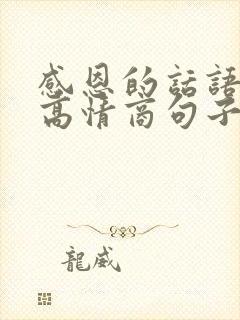 感恩的話語
高情商句子
龍威